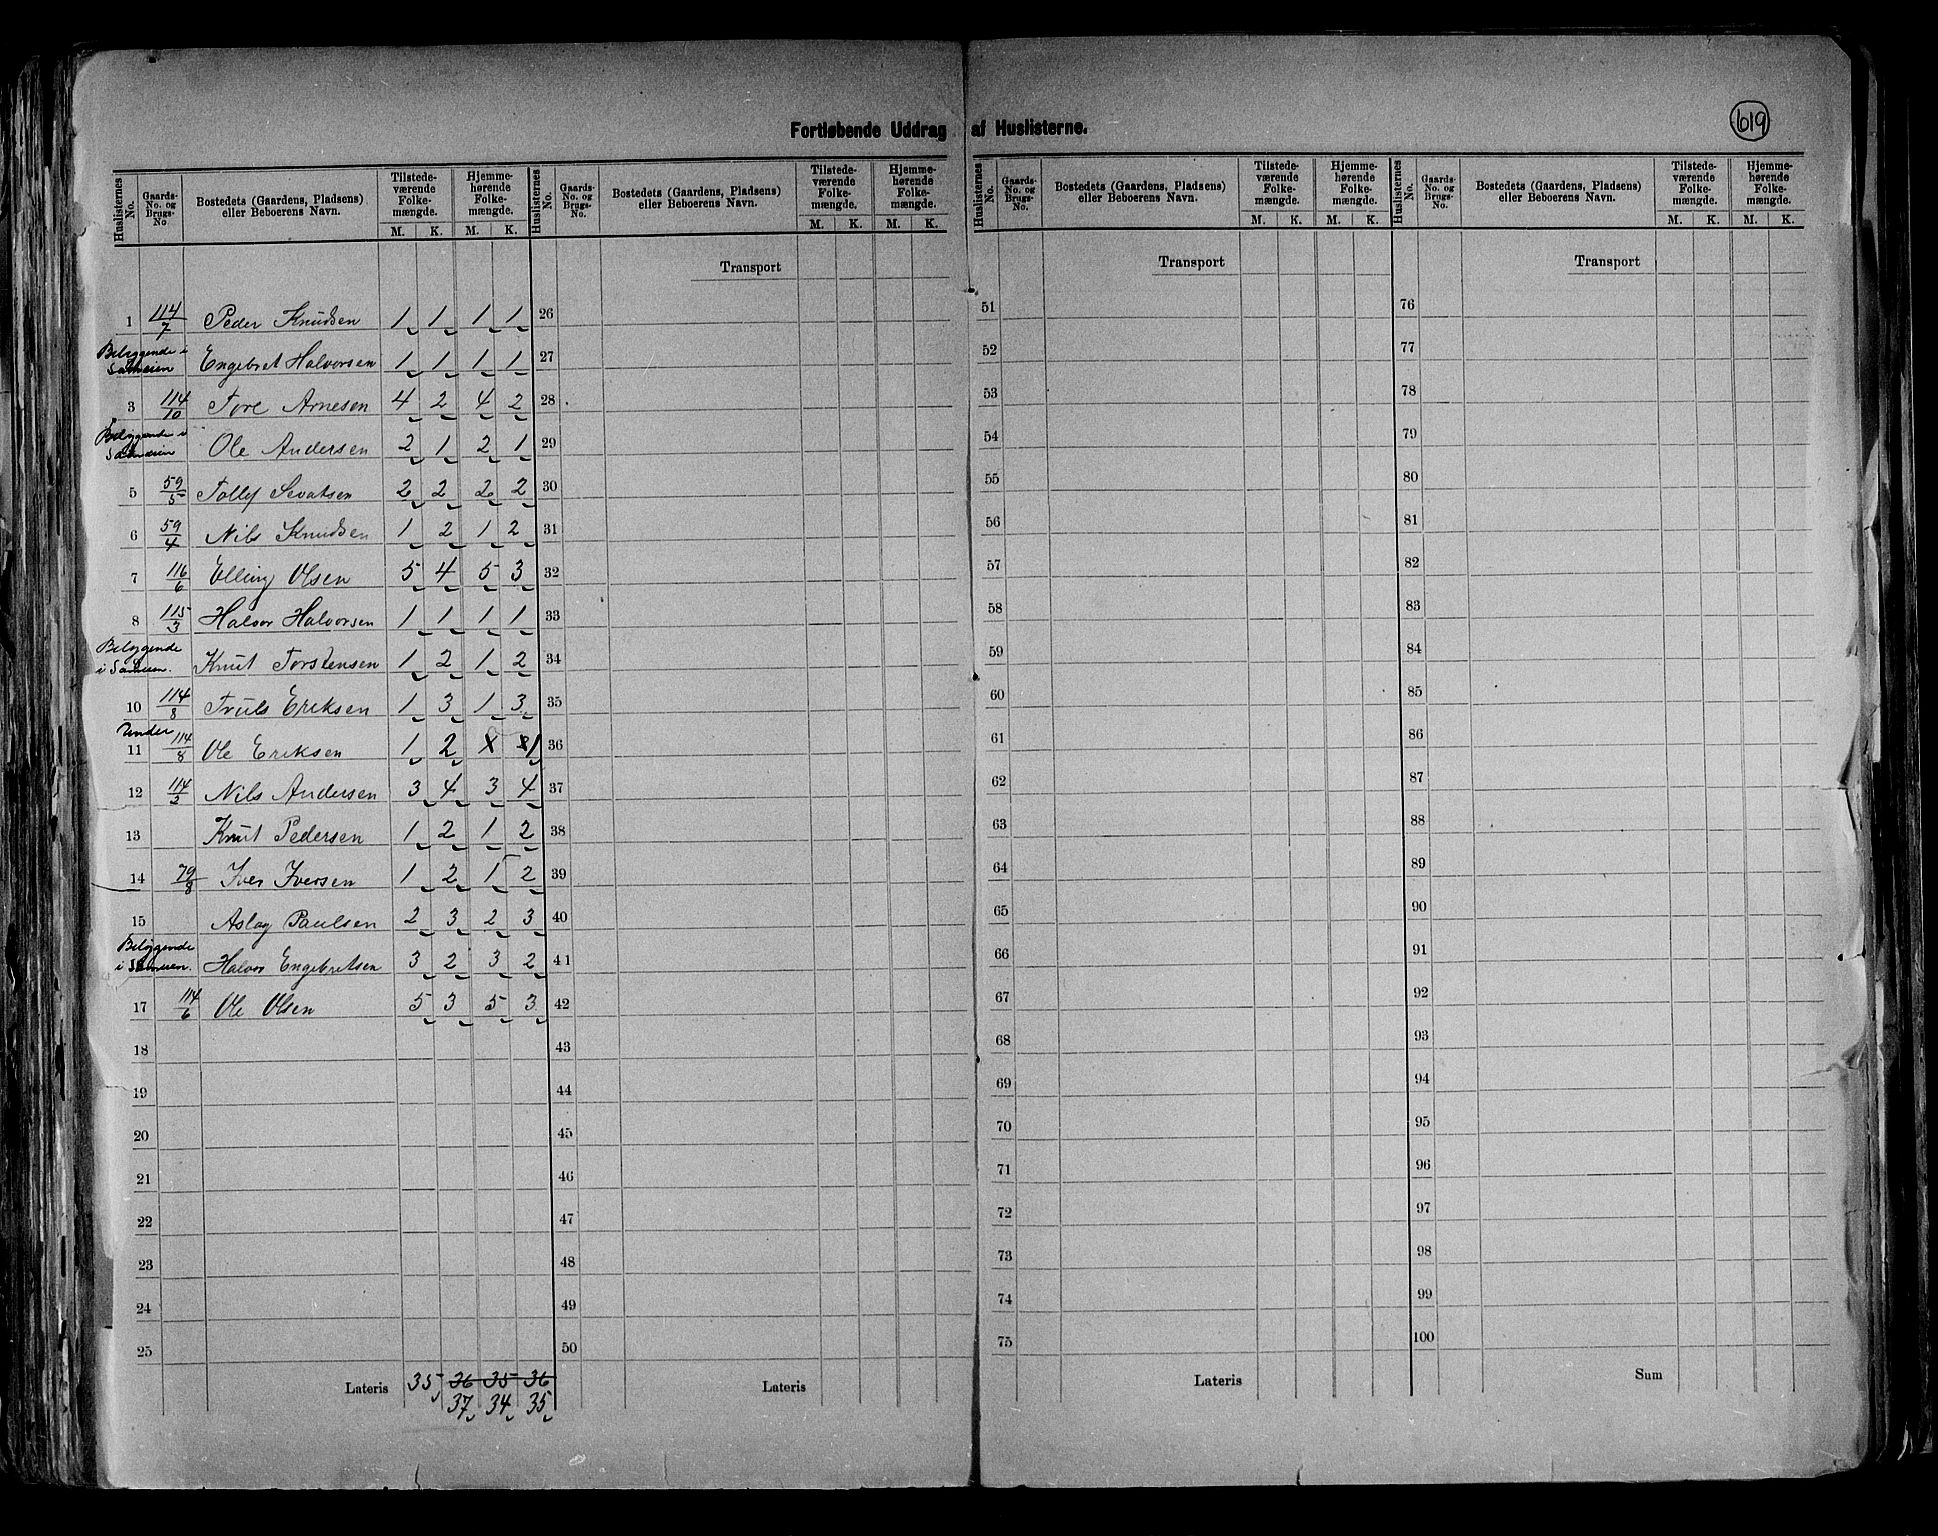 Fortløbende Uddrag af Huslisterne.
619
Huslisternes No. | Gaards-No. og Brugs-No | Bostedets (Gaardens, Pladsens) eller Beboerens Navn. | Tilstedeværende Folkemængde. M. K. | Hjemmehørende Folkemængde. M. K.
1 | 114/7 | Peder Knudsen | 1 | 1 | 1 | 1
Beliggende i Sameien | Engebret Halvorsen | 1 | 1 | 1 | 1
3 | 114/10 | Tore Arnesen | 4 | 2 | 4 | 2
Beliggende i Sameien | Ole Andersen | 2 | 1 | 2 | 1
5 | 59/5 | Tollef Sevatsen | 2 | 2 | 2 | 2
6 | 59/4 | Nils Knudsen | 1 | 2 | 1 | 2
7 | 116/6 | Elling Olsen | 5 | 4 | 5 | 3
8 | 115/3 | Halvor Halvorsen | 1 | 1 | 1 | 1
Beliggende i Sameien. | Knut Torstensen | 1 | 2 | 1 | 2
10 | 114/8 | Truls Eriksen | 1 | 3 | 1 | 3
11 | Under 114/8 | Ole Eriksen | 1 | 2 | x | 1
12 | 114/3 | Nils Andersen | 3 | 4 | 3 | 4
13 | Knut Pedersen | 1 | 2 | 1 | 2
14 | 79/8 | Iver Iversen | 1 | 2 | 1 | 2
15 | Aslag Paulsen | 2 | 3 | 2 | 3
Beliggende i Sameien. | Halvor Engebretsen | 3 | 2 | 3 | 2
17 | 114/6 | Ole Olsen | 5 | 3 | 5 | 3
18
19
20
21
22
23
24
25
Lateris | 35 | 36 | 35 | 36
37 | 34 | 35
Huslisternes No. | Gaards-No. og Brugs-No. | Bostedets (Gaardens, Pladsens) eller Beboerens Navn. | Tilstedeværende Folkemængde. M. K. | Hjemmehørende Folkemængde. M. K.
Transport
26
27
28
29
30
31
32
33
34
35
36
37
38
39
40
41
42
43
44
45
46
47
48
49
50
Lateris
Huslisternes No. | Gaards-No. og Brugs-No. | Bostedets (Gaardens, Pladsens) eller Beboerens Navn. | Tilstedeværende Folkemængde. M. K. | Hjemmehørende Folkemængde. M. K.
Transport
51
52
53
54
55
56
57
58
59
60
61
62
63
64
65
66
67
68
69
70
71
72
73
74
75
Lateris
Huslisternes No. | Gaards-No. og Brugs-No. | Bostedets (Gaardens, Pladsens) eller Beboerens Navn. | Tilstedeværende Folkemængde. M. K. | Hjemmehørende Folkemængde. M. K.
Transport
76
77
78
79
80
81
82
83
84
85
86
87
88
89
90
91
92
93
94
95
96
97
98
99
100
Sum